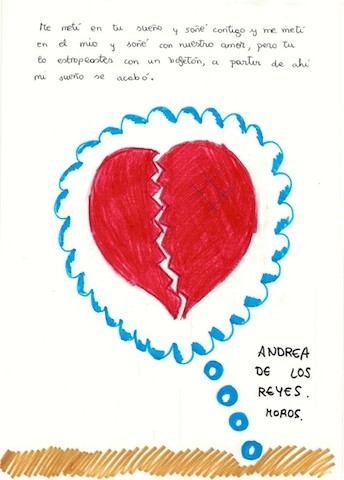 Me metí en tu sueño y soñé contigo y me metí
en el mio y soñé con nuestro amor, pero tu
lo estropeastes con un bofetón, a partir de ahí
mi sueño se acabó.
ANDREA
DE LOS
REYES.
MOROS.